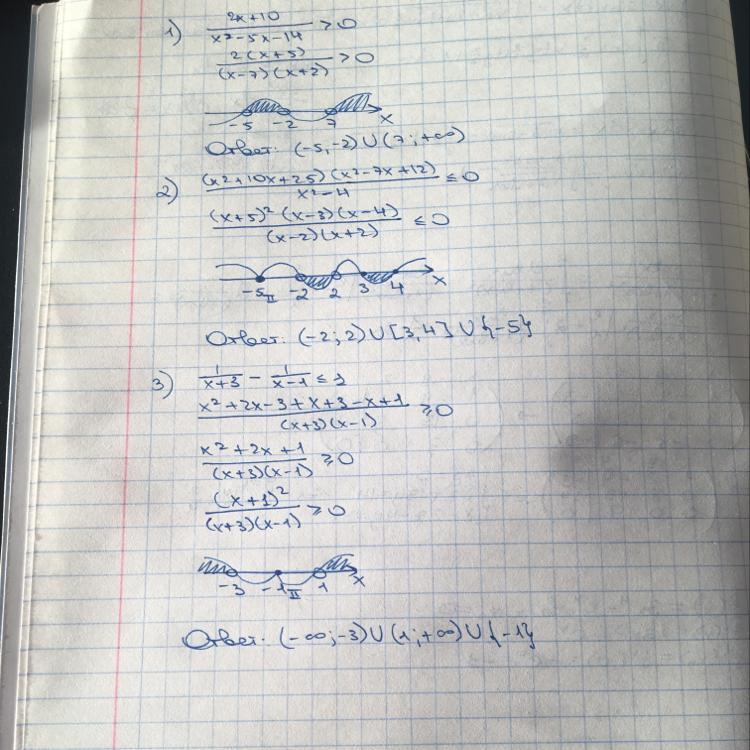 1) (2x+10)/(x²-5x-14) > 0
2(x+5)/((x-7)(x+2)) > 0
-5 -2 7 x
Ответ: (-5,-2)∪(7;+∞)
2) (x²+10x+25)(x²-7x+12)/(x²-4) ≤ 0
(x+5)²(x-3)(x-4)/((x-2)(x+2)) ≤ 0
-5 II -2 2 3 4 x
Ответ: (-2;2)∪[3,4]∪{-5}
3) 1/(x+3) - 1/(x-1) ≤ 1
(x²+2x-3+x+3-x+1)/((x+3)(x-1)) ≥ 0
(x²+2x+1)/((x+3)(x-1)) ≥ 0
(x+1)²/((x+3)(x-1)) ≥ 0
-3 -1 II 1 x
Ответ: (-∞;-3)∪(1;+∞)∪{-1}